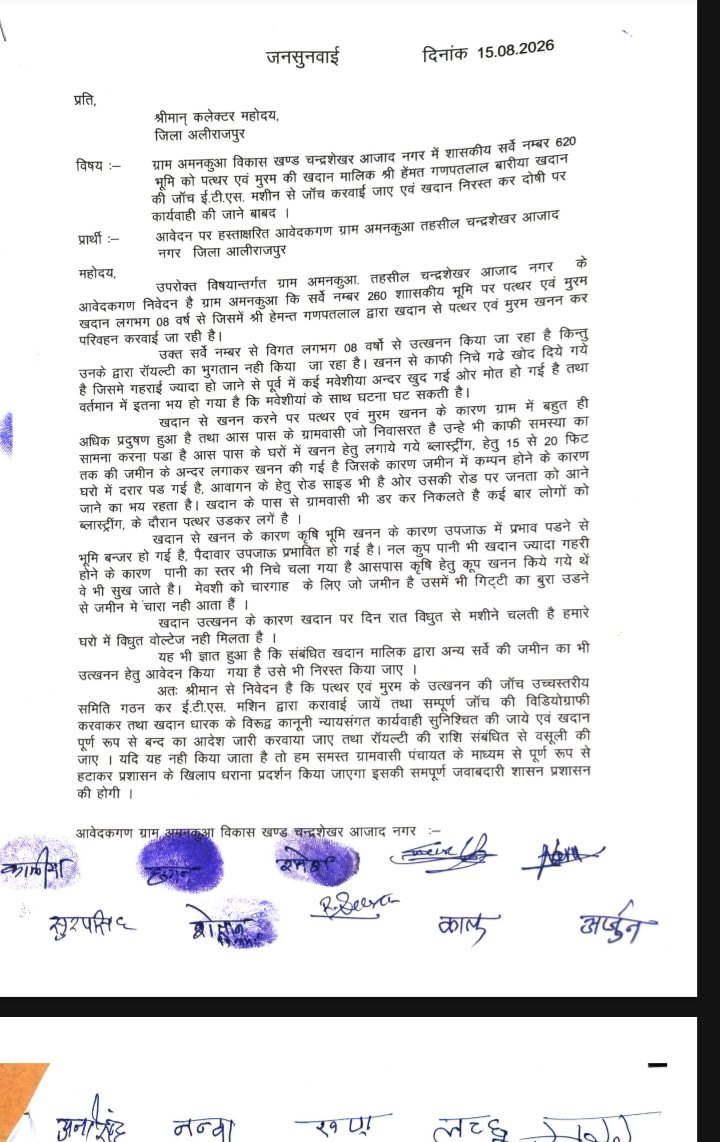 जनसुनवाई दिनांक 15.08.2026
प्रति,
श्रीमान् कलेक्टर महोदय,
जिला अलीराजपुर
विषय :– ग्राम अमनकुआ विकास खण्ड चन्द्रशेखर आजाद नगर में शासकीय सर्वे नम्बर 620
भूमि को पत्थर एवं मुरम की खदान मालिक श्री हेंमत गणपतलाल बारीया खदान
की जॉच ई.टी.एस. मशीन से जॉच करवाई जाए एवं खदान निरस्त कर दोषी पर
कार्यवाही की जाने बाबद ।
प्रार्थी :– आवेदन पर हस्ताक्षरित आवेदकगण ग्राम अमनकुआ तहसील चन्द्रशेखर आजाद
नगर जिला आलीराजपुर
महोदय,
उपरोक्त विषयान्तर्गत ग्राम अमनकुआ. तहसील चन्द्रशेखर आजाद नगर के
आवेदकगण निवेदन है ग्राम अमनकुआ कि सर्वे नम्बर 260 शाासकीय भूमि पर पत्थर एवं मुरम
खदान लगभग 08 वर्ष से जिसमें श्री हेमन्त गणपतलाल द्वारा खदान से पत्थर एवं मुरम खनन कर
परिवहन करवाई जा रही है।
उक्त सर्वे नम्बर से विगत लगभग 08 वर्षो से उत्खनन किया जा रहा है किन्तु
उनके द्वारा रॉयल्टी का भुगतान नही किया जा रहा है। खनन से काफी निचे गढे खोद दिये गये
है जिसमे गहराई ज्यादा हो जाने से पूर्व में कई मवेशीया अन्दर खुद गई ओर मोत हो गई है तथा
वर्तमान में इतना भय हो गया है कि मवेशीयां के साथ घटना घट सकती है।
खदान से खनन करने पर पत्थर एवं मुरम खनन के कारण ग्राम में बहुत ही
अधिक प्रदुषण हुआ है तथा आस पास के ग्रामवासी जो निवासरत है उन्हे भी काफी समस्या का
सामना करना पडा है आस पास के घरों में खनन हेतु लगाये गये ब्लास्ट्रींग, हेतु 15 से 20 फिट
तक की जमीन के अन्दर लगाकर खनन की गई है जिसके कारण जमीन में कम्पन होने के कारण
घरो में दरार पड गई है, आवागन के हेतु रोड साइड भी है ओर उसकी रोड पर जनता को आने
जाने का भय रहता है। खदान के पास से ग्रामवासी भी डर कर निकलते है कई बार लोगों को
ब्लास्ट्रींग, के दौरान पत्थर उडकर लगें है ।
खदान से खनन के कारण कृषि भूमि खनन के कारण उपजाऊ में प्रभाव पडने से
भूमि बन्जर हो गई है, पैदावार उपजाऊ प्रभावित हो गई है। नल कुप पानी भी खदान ज्यादा गहरी
होने के कारण पानी का स्तर भी निचे चला गया है आसपास कृषि हेतु कूप खनन किये गये थें
वे भी सुख जाते है। मेवशी को चारगाह के लिए जो जमीन है उसमें भी गिट्टी का बुरा उडने
से जमीन मे चारा नही आता हैं ।
खदान उत्खनन के कारण खदान पर दिन रात विधुत से मशीने चलती है हमारे
घरो में विधुत वोल्टेज नही मिलता है ।
यह भी ज्ञात हुआ है कि संबंधित खदान मालिक द्वारा अन्य सर्वे की जमीन का भी
उत्खनन हेतु आवेदन किया गया है उसे भी निरस्त किया जाए ।
अतः श्रीमान से निवेदन है कि पत्थर एवं मुरम के उत्खनन की जॉच उच्चस्तरीय
समिति गठन कर ई.टी.एस. मशिन द्वारा करावाई जायें तथा सम्पूर्ण जॉच की विडियोग्राफी
करवाकर तथा खदान धारक के विरूद्व कानूनी न्यायसंगत कार्यवाही सुनिश्चित की जाये एवं खदान
पूर्ण रूप से बन्द का आदेश जारी करवाया जाए तथा रॉयल्टी की राशि संबंधित से वसूली की
जाए । यदि यह नही किया जाता है तो हम समस्त ग्रामवासी पंचायत के माध्यम से पूर्ण रूप से
हटाकर प्रशासन के खिलाप धराना प्रदर्शन किया जाएगा इसकी समपूर्ण जवाबदारी शासन प्रशासन
की होगी ।
आवेदकगण ग्राम अमनकुआ विकास खण्ड चन्द्रशेखर आजाद नगर :–
रमेश
कालु अर्जुन
नन्वा लच्छु